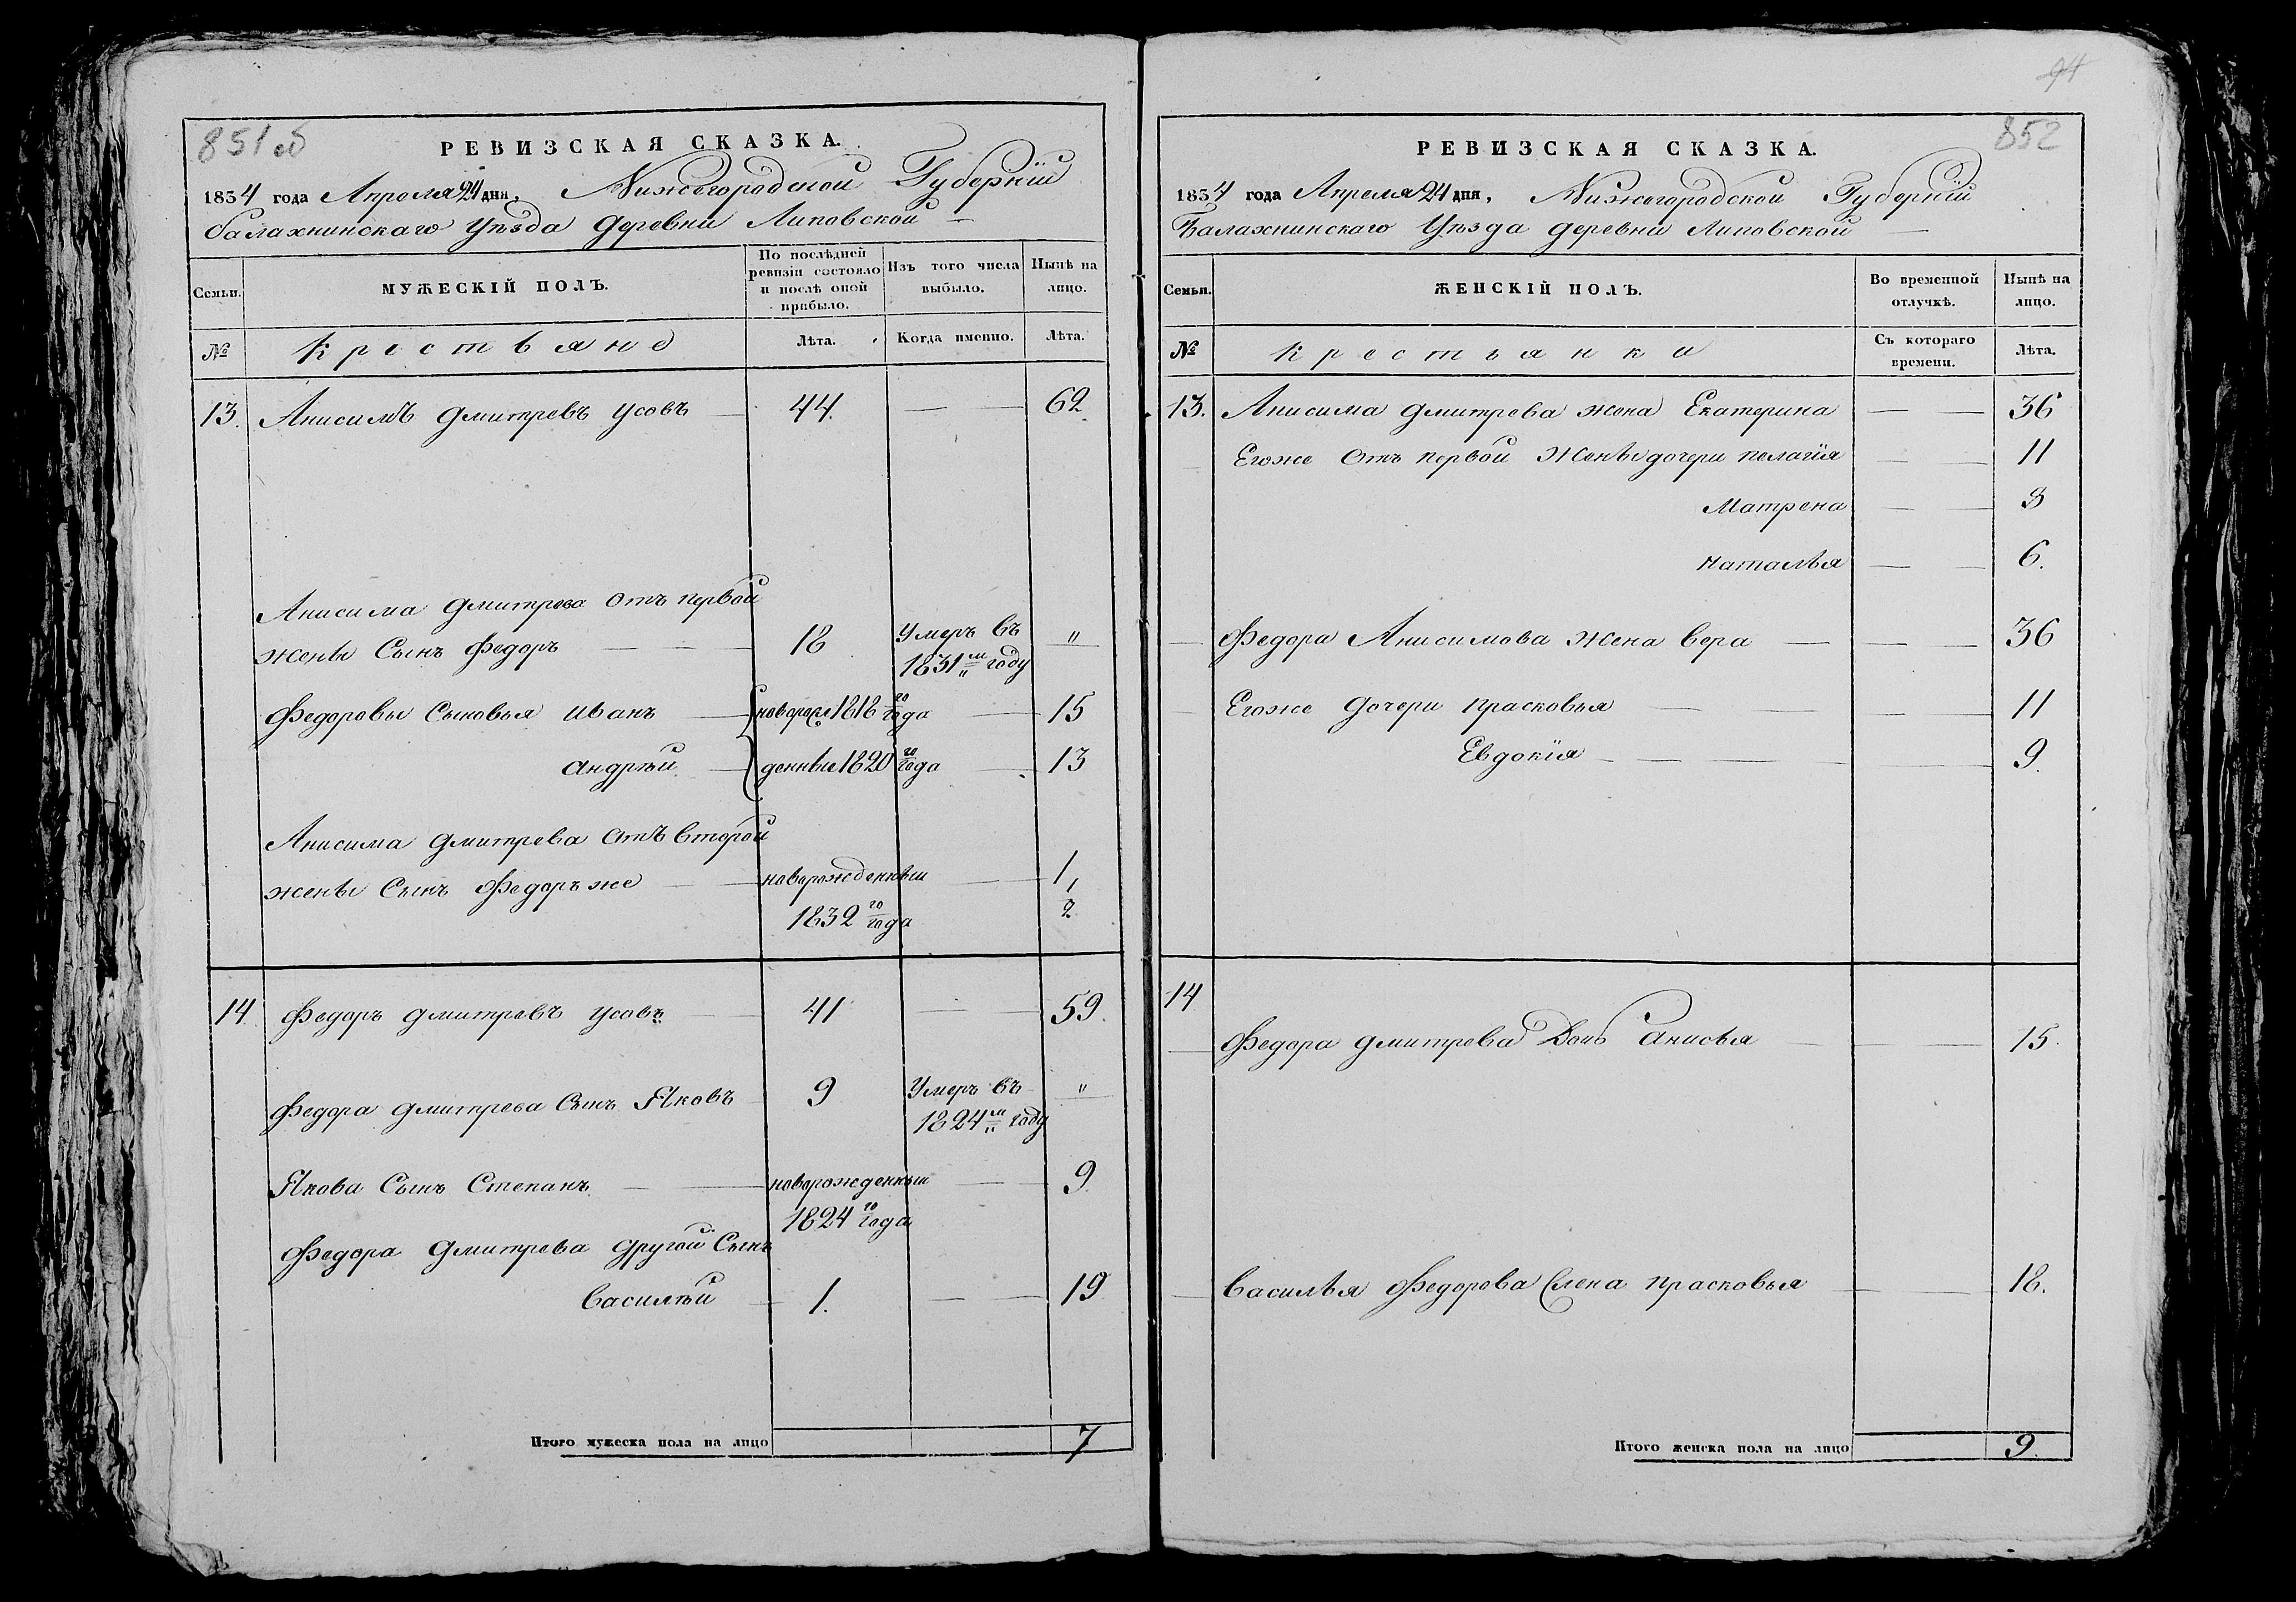 851об
РЕВИЗСКАЯ СКАЗКА.
1834 года Апреля 24 дня, Нижегородской Губерніи
балахнинскаго Уѣзда деревни Липовской
Семьи.
МУЖЕСКІЙ ПОЛЪ.
По послѣдней ревизіи состояло и послѣ оной прибыло.
Изъ того числа выбыло.
Нынѣ на лицо.
№
Крестьяне
Лѣта.
Когда именно.
Лѣта.
13. Анисимъ дмитревъ усовъ 44. 62
Анисима дмитрева отъ первой
жены Сынъ Федоръ 18 Умеръ въ 1831м году "
Федоровы Сыновья иванъ новорож 1818го года 15
андрѣй денные 1820го года 13
Анисима дмитрева отъ второй
жены Сынъ Федоръ же новорожденный 1832го года 1/2
14 Федоръ дмитревъ усовъ 41 59.
Федора дмитрева Сынъ Яковъ 9 Умеръ въ 1824м году "
Якова Сынъ Степанъ новорожденный 1824го года 9
Федора дмитрева другой Сынъ
василѣй 1. 19
Итого мужеска пола на лицо 7
94
852
РЕВИЗСКАЯ СКАЗКА.
1834 года Апреля 24 дня, Нижегородской Губерніи
Балахнинскаго Уѣзда деревни Липовской
Семьи.
ЖЕНСКІЙ ПОЛЪ.
Во временной отлучкѣ.
Нынѣ на лицо.
№
крестьянки
Съ котораго времени.
Лѣта.
13. Анисима дмитрева жена Екатерина 36
Егоже отъ первой жены дочери пелагія 11
Матрена 8
наталья 6.
Федора Анисимова жена вера 36
Егоже дочери прасковья 11
Евдокія 9.
14
Федора дмитрева Дочь анисья 15.
василья Федорова жена прасковья 18.
Итого женска пола на лицо 9.